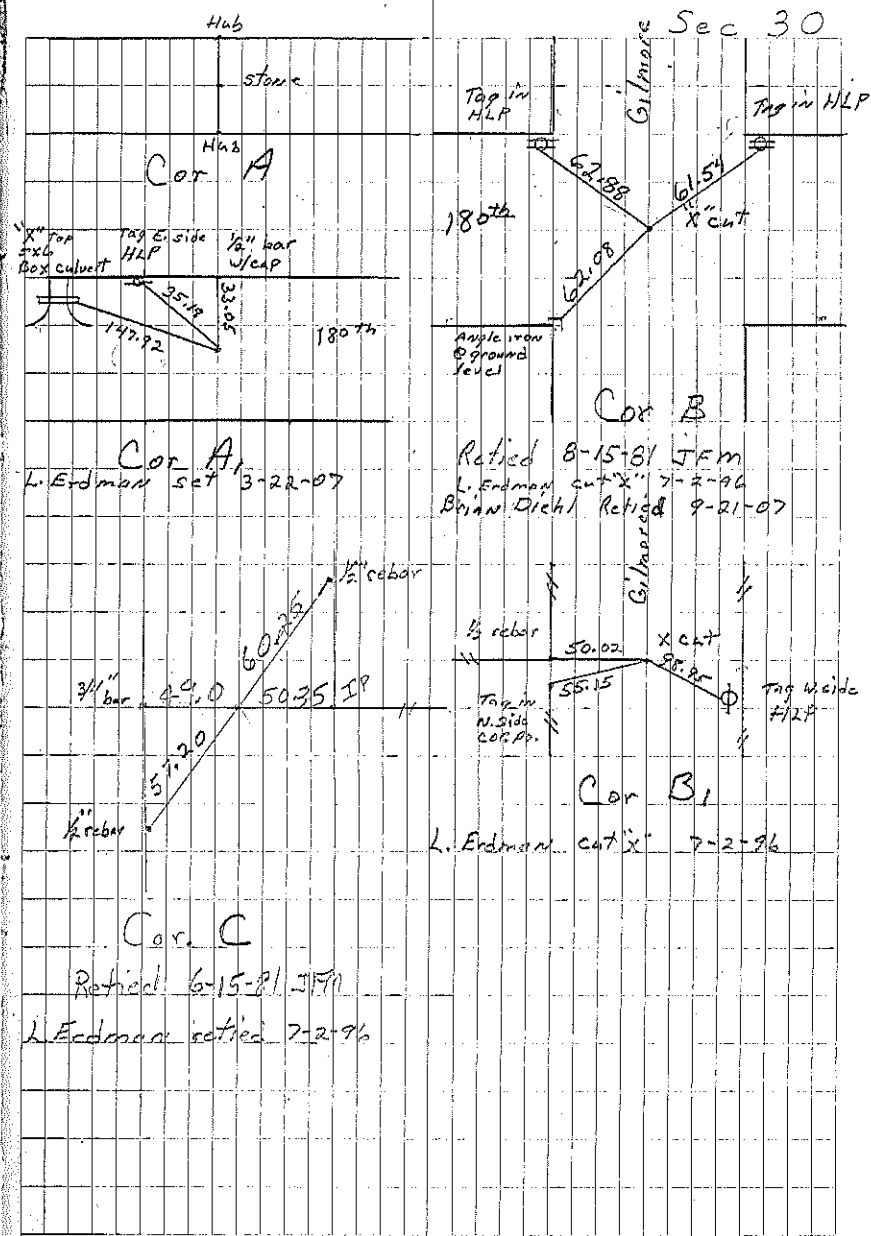 Sec 30
Hub
stone
Hub
Cor A
"X" Top
5x6
Box culvert
Tag E. side
HLP
1/2" bar
w/cap
35.19
33.05
147.92
180th
Cor A1
L. Erdman set 3-22-07
1/2" rebar
60.26
3/4" bar
49.0
50.35 IP
57.20
1/2" rebar
Cor. C
Retied 6-15-81 JFM
L Erdman retied 7-2-96
Gilmore
Tag in
HLP
Tag in HLP
62.88
61.54
"X" cut
180th
62.08
Angle iron
@ ground
level
Cor B
Retied 8-15-81 JFM
L. Erdman cut "X" 7-2-96
Brian Diehl Retied 9-21-07
Gilmore
1/2 rebar
50.02
X cut
55.15
98.95
Tag in
N. side
cor po.
Tag W. side
HLP
Cor B1
L. Erdman cut "x" 7-2-96